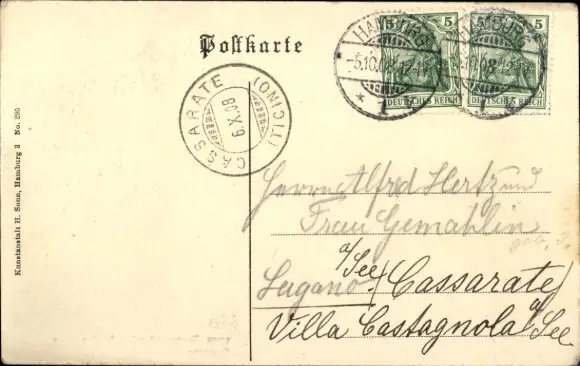 Postkarte
5 5
5 5
HAMBURG
-5.10.08.
* 1
DEUTSCHES REICH
DEUTSCHES REICH
CASSARATE
(TICINO)
6.X.08
Kunstanstalt H. Sonn, Hamburg 3 No. 295
Herrn Alfred Hertz und
Frau Gemahlin
a/See
Lugano / Cassarate
Villa Castagnola a/See